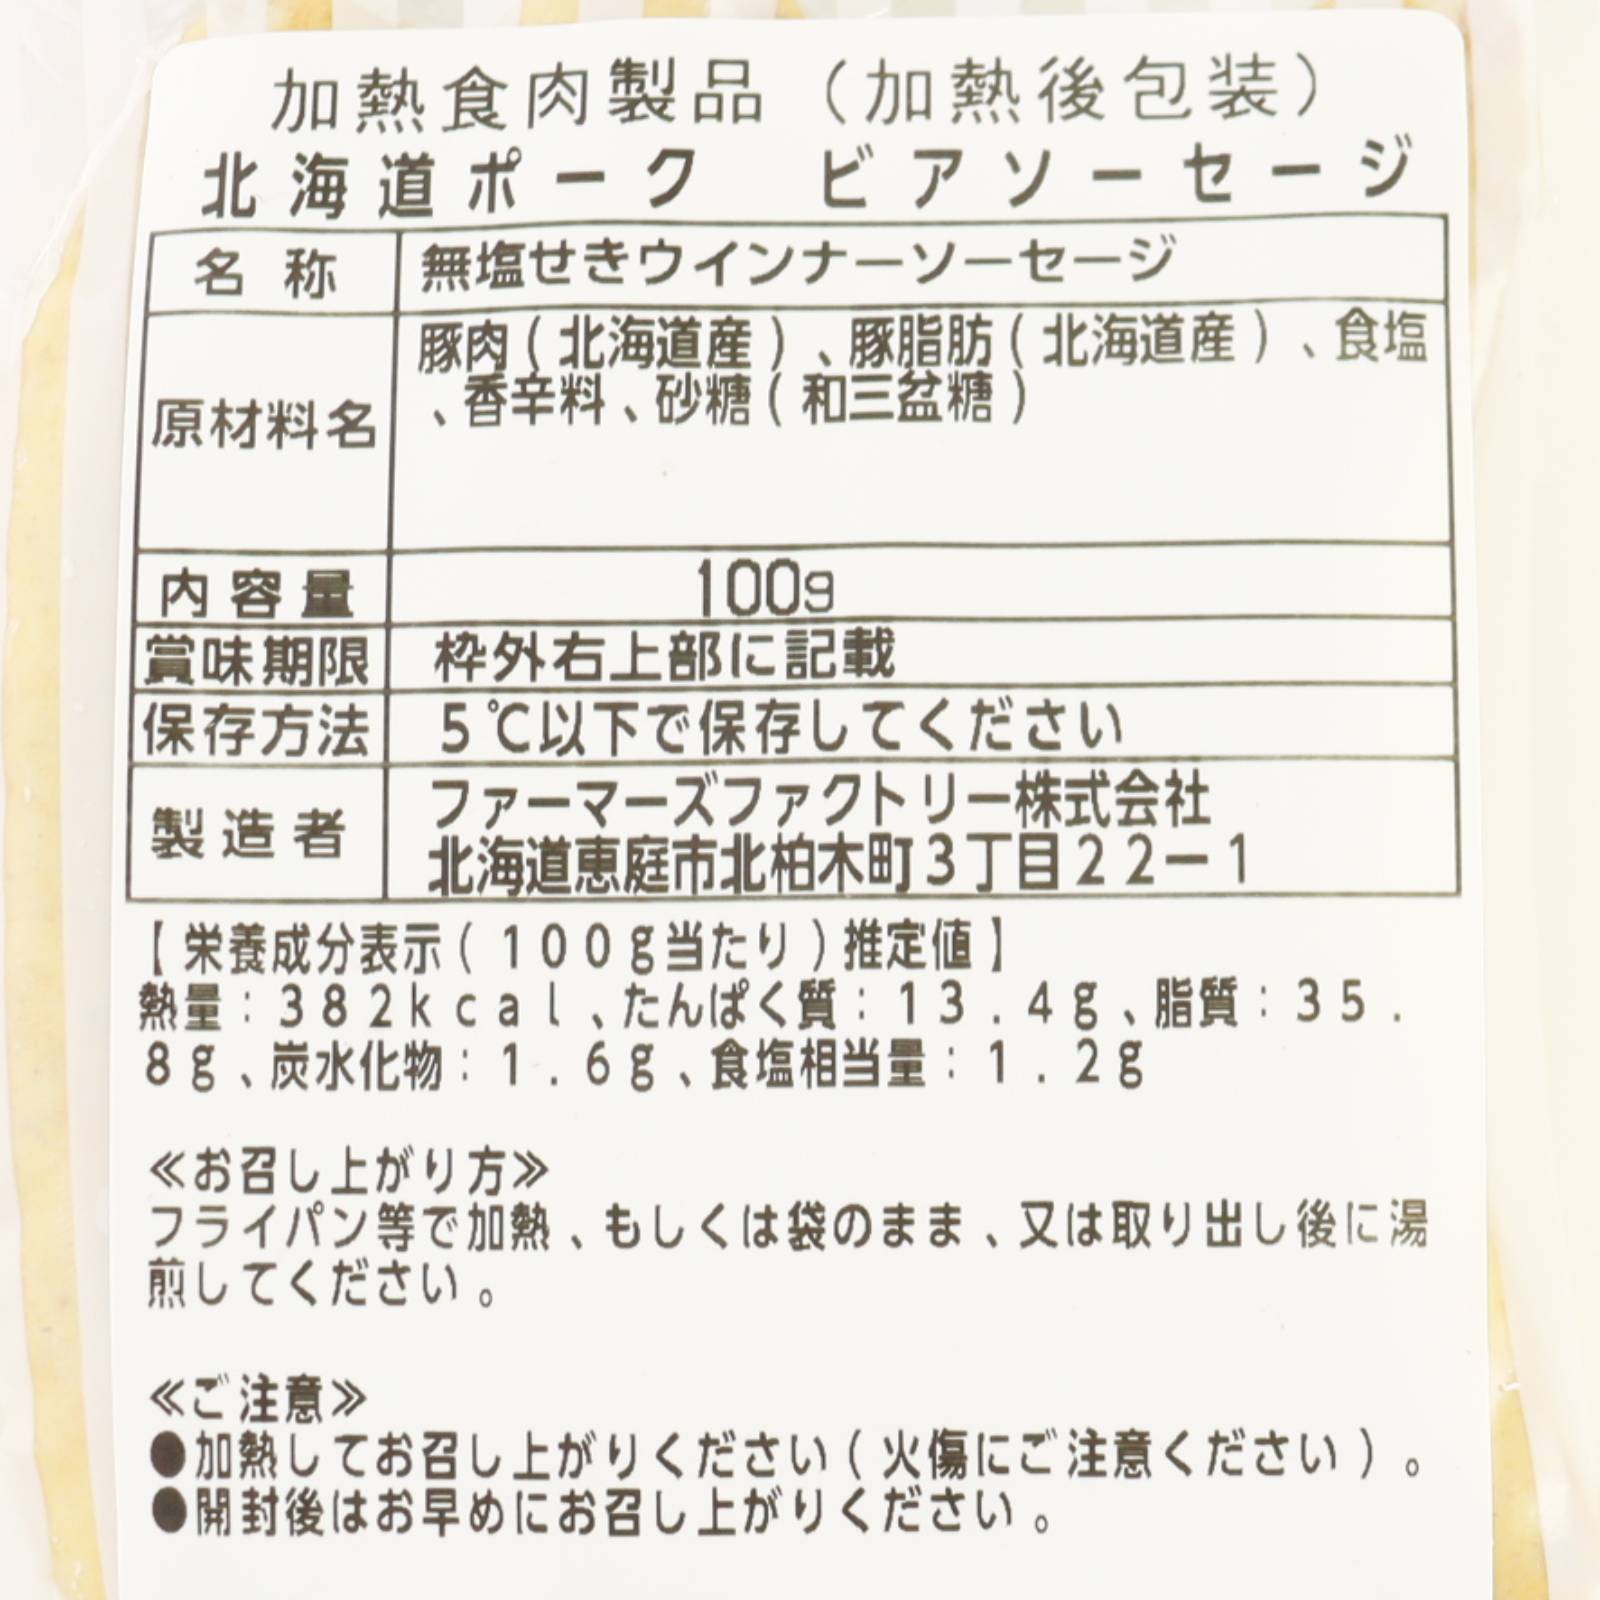 加熱食肉製品（加熱後包装）
北海道ポーク　ビアソーセージ
名称　無塩せきウインナーソーセージ
原材料名　豚肉(北海道産)、豚脂肪(北海道産)、食塩
、香辛料、砂糖(和三盆糖)
内容量　100g
賞味期限　枠外右上部に記載
保存方法　5℃以下で保存してください
製造者　ファーマーズファクトリー株式会社
北海道恵庭市北柏木町3丁目22ー1
【栄養成分表示(100g当たり)推定値】
熱量:382kcal、たんぱく質:13.4g、脂質:35.
8g、炭水化物:1.6g、食塩相当量:1.2g
≪お召し上がり方≫
フライパン等で加熱、もしくは袋のまま、又は取り出し後に湯
煎してください。
≪ご注意≫
●加熱してお召し上がりください(火傷にご注意ください)。
●開封後はお早めにお召し上がりください。